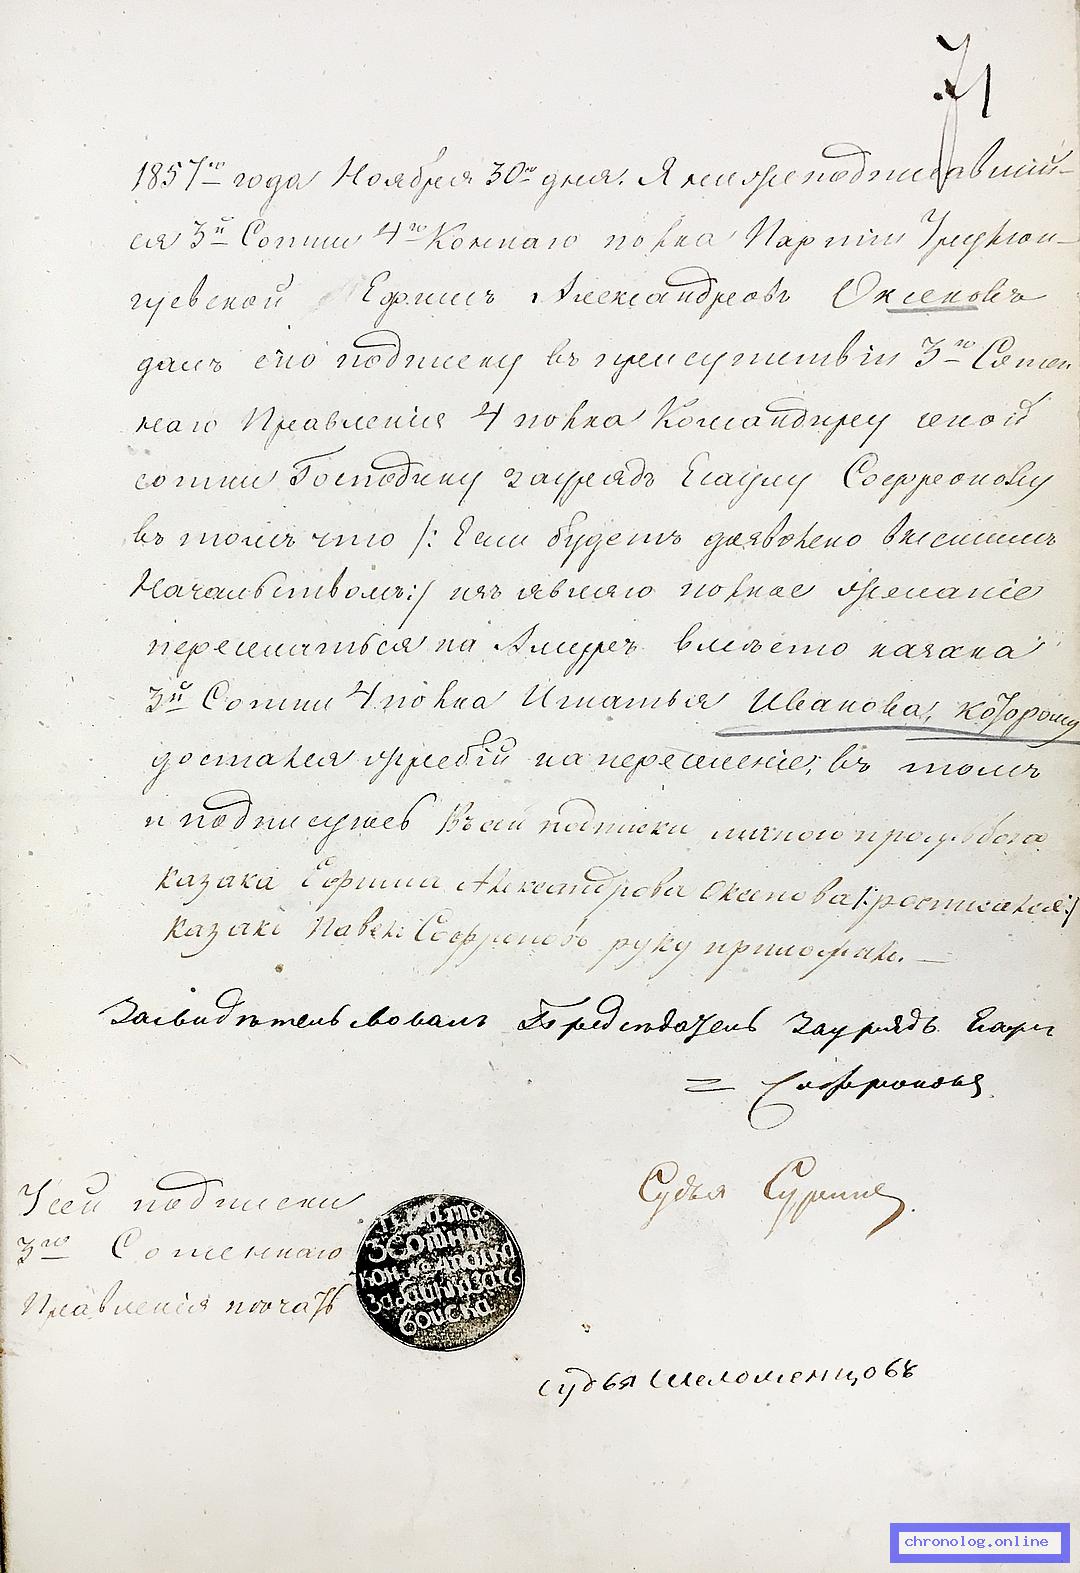 71
1857го года Ноября 30го дня. Я нижеподписавшій-
ся 3й Сотни 4го Коннаго полка Партіи
Ефимъ Александровъ Оксеновъ
далъ сію подписку въ присутствіи 3го Сотен
наго Правленія 4 полка Командиру оной
сотни Господину зауряд Есаулу Софронову
въ томъ что /: Если будетъ дозволено высшимъ
Начальствомъ :/ изъявляю полное желаніе
переселиться на Амуръ вместо казака
3й Сотни 4 полка Игнатья Иванова, которому
достался жребій на переселеніе, въ томъ
и подписуюсь Къ сей подписки личною прозьбою
казака Ефима Александрова Оксенова /: росписался :/
казакъ Павелъ Софроновъ руку приложилъ. —
Засвидѣтельствовалъ Председатель Заурядъ Есаул
= Софроновъ
Судья
У сей подписки
3го Сотеннаго
Правленія печать
Печать
3 Сотни
кон. 4 полка
Забайк. казач.
войска.
судья Шеломенцовъ
chronolog.online